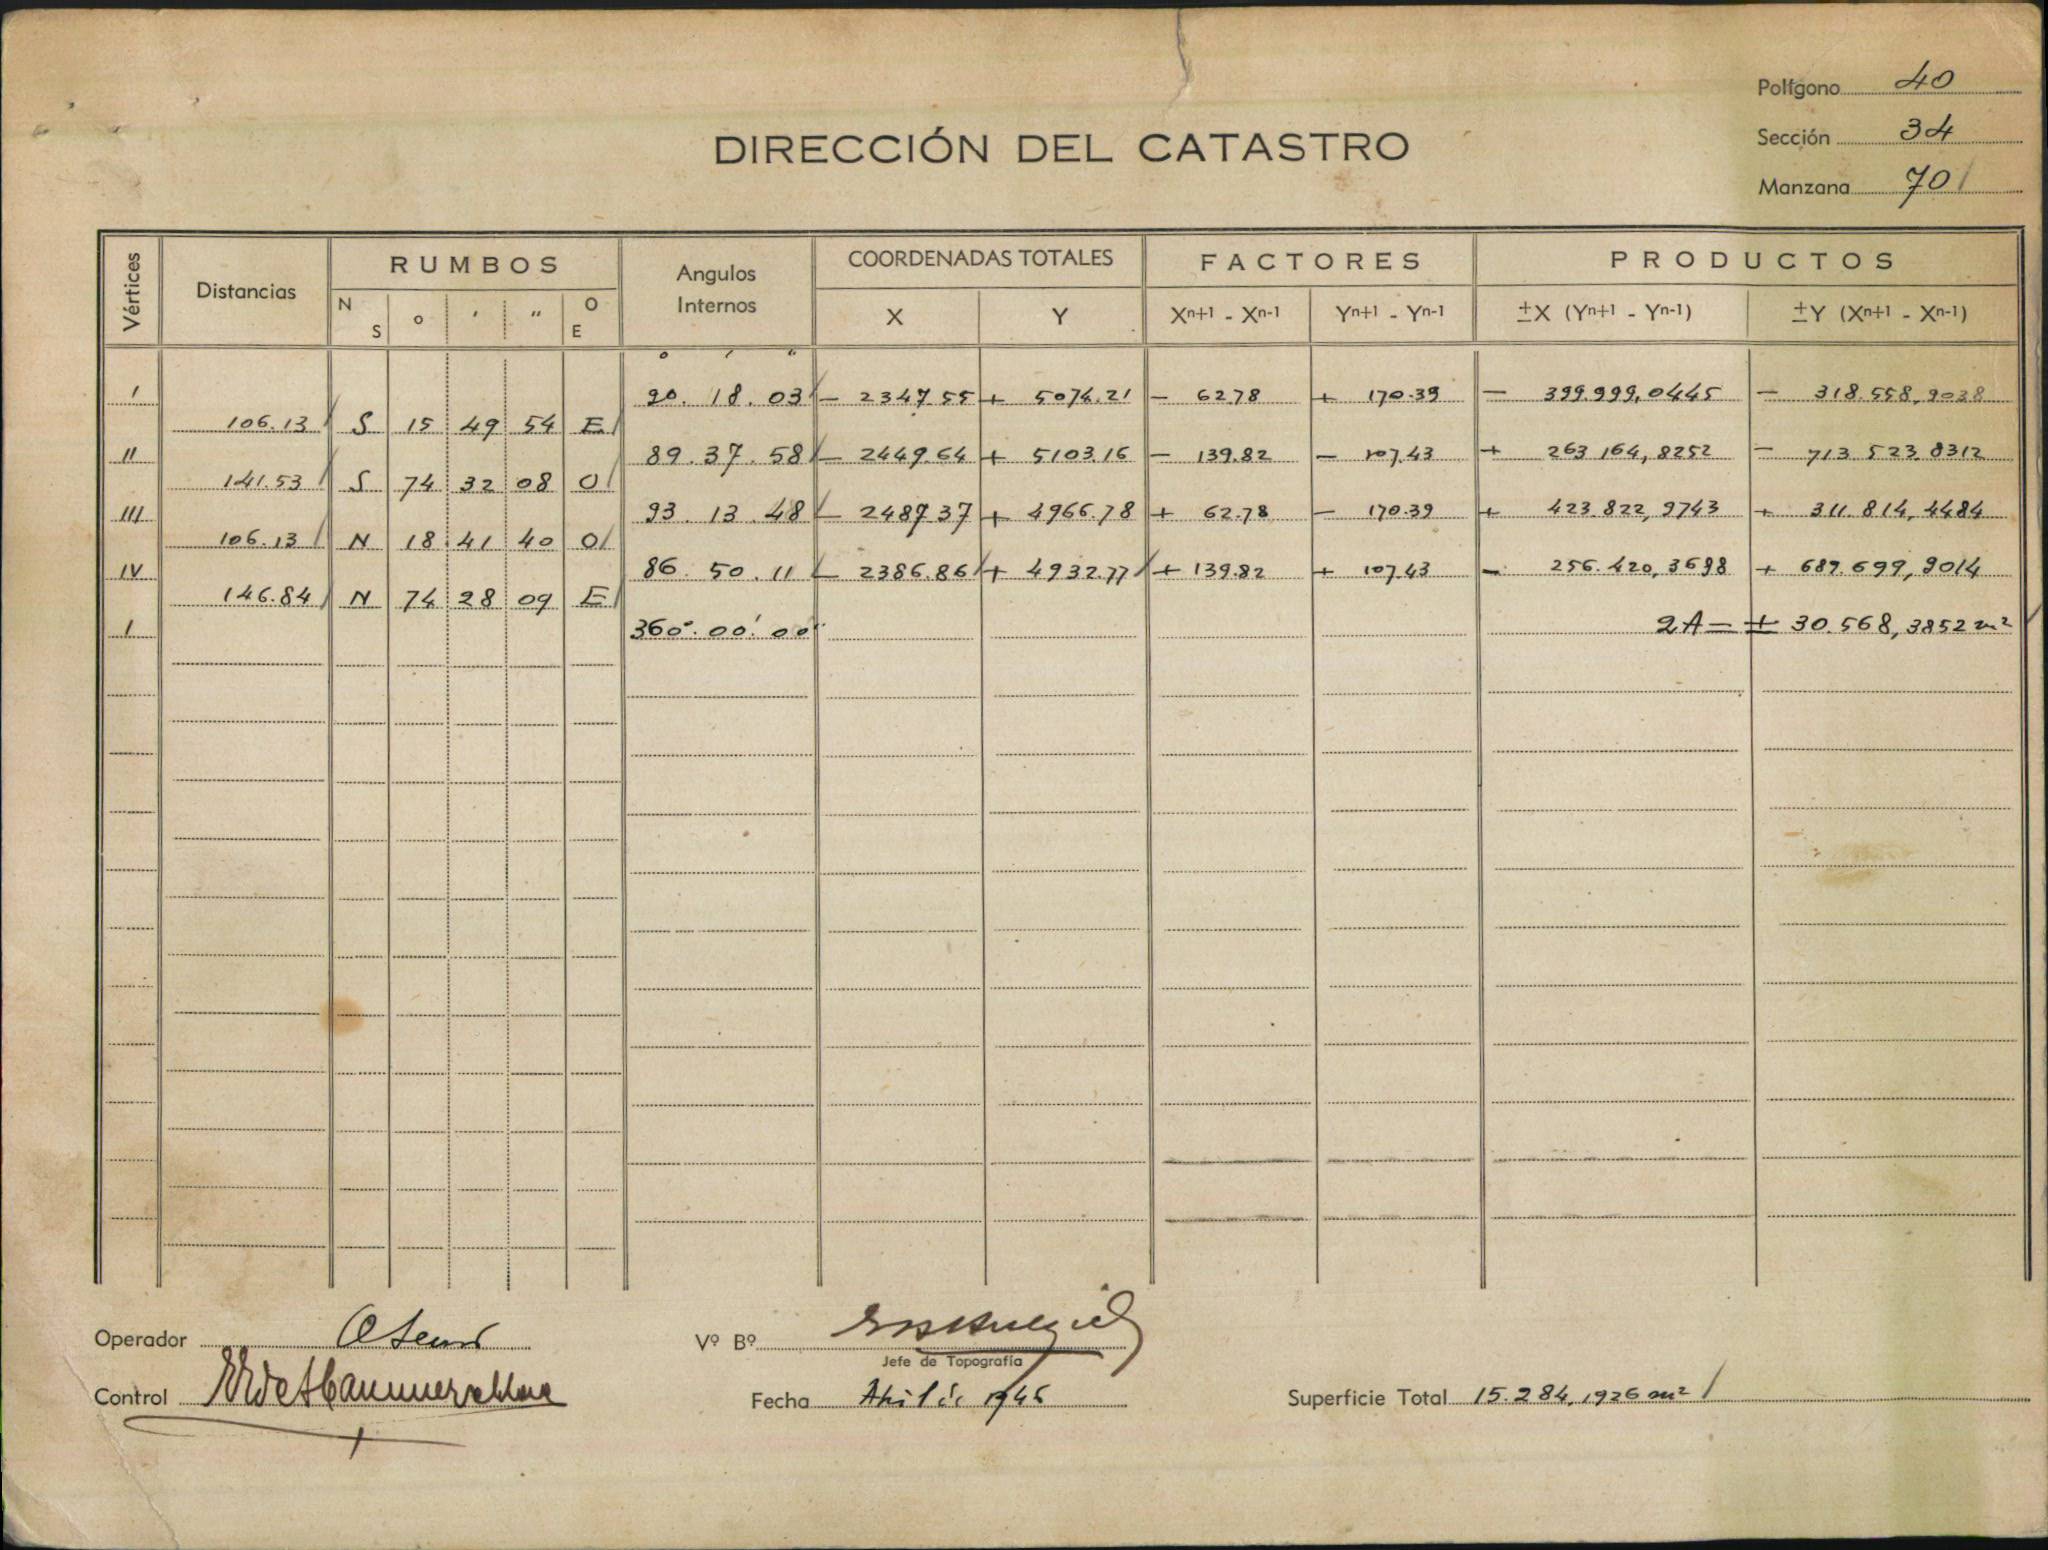 Polígono 40
DIRECCIÓN DEL CATASTRO
Sección 34
Manzana 70
Vértices Distancias RUMBOS Angulos Internos COORDENADAS TOTALES FACTORES PRODUCTOS
N S o ' " O E X Y Xn+1 - Xn-1 Yn+1 - Yn-1 ±X (Yn+1 - Yn-1) ±Y (Xn+1 - Xn-1)
o ' "
I 90. 18. 03 - 2347.55 + 5074.21 - 62.78 + 170.39 - 399.999,0445 - 318.558,9038
106.13 S 15 49 54 E
II 89. 37. 58 - 2449.64 + 5103.16 - 139.82 - 107.43 + 263 164,8252 - 713 523.8312
141.53 S 74 32 08 O
III 93. 13. 48 - 2487.37 + 4966.78 + 62.78 - 170.39 + 423.822,9743 + 311.814,4484
106.13 N 18 41 40 O
IV 86. 50. 11 - 2386.86 + 4932.77 + 139.82 + 107.43 - 256.420,3698 + 689.699,9014
146.84 N 74 28 09 E
I 360°. 00'. 00" 2A = ± 30.568,3852 m²
Operador
Vº Bº
Jefe de Topografía
Control
Fecha Abril de 1946
Superficie Total 15.284,1926 m²